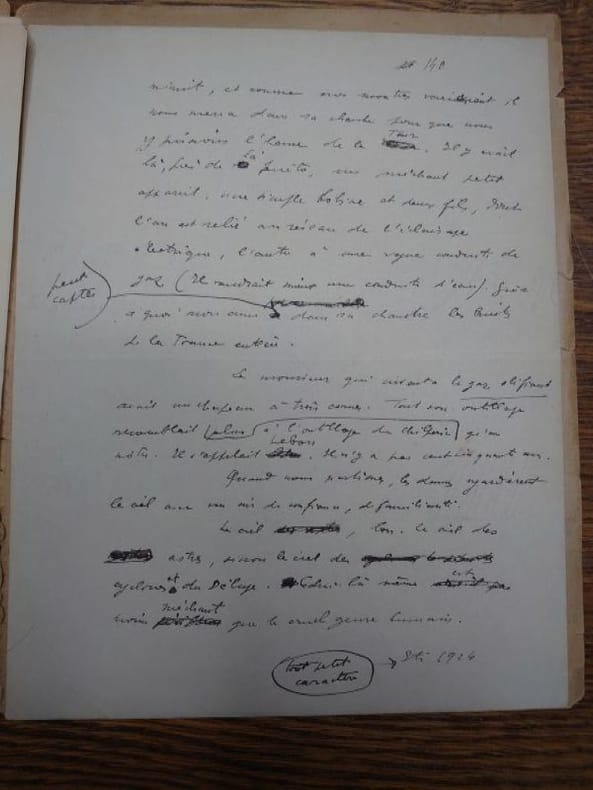 140
minuit, et comme nos montres variaient, il
nous mena dans sa chambre pour que nous
y prissions l'heure de la Tour. Il y avait
là, près de la fenêtre, un méchant petit
appareil, une simple bobine et deux fils, dont
l'un est relié au réseau de l'éclairage
électrique, l'autre à une vague conduite de
gaz (Il vaudrait mieux une conduite d'eau). Grâce
peut capter
à quoi mon ami dans sa chambre les bruits
de la France entière.
Le monsieur qui inventa le gaz oléifiant
avait un chapeau à trois cornes. Tout son outillage
ressemblait plus à l'outillage du qu'au
nôtre. Il s'appelait Lebon. Il n'y a pas cent cinquante ans.
Quand nous sortîmes, les dames regardèrent
le ciel avec un air de confiance, de familiarité.
Le ciel, bon. Le ciel des
astres, sinon le ciel des
cyclones et du Déluge. là même est
moins méchant que le cruel genre humain.
tout petit
caractère
→ Eté 1924